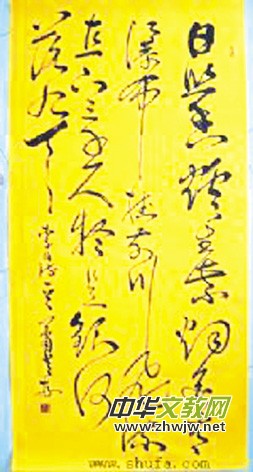 日照香爐生紫烟遥看
瀑布挂前川飛流
直下三千尺疑是銀河
落九天 李白诗一首
中华文教网
www.zhwjw.net
www.shufa.com